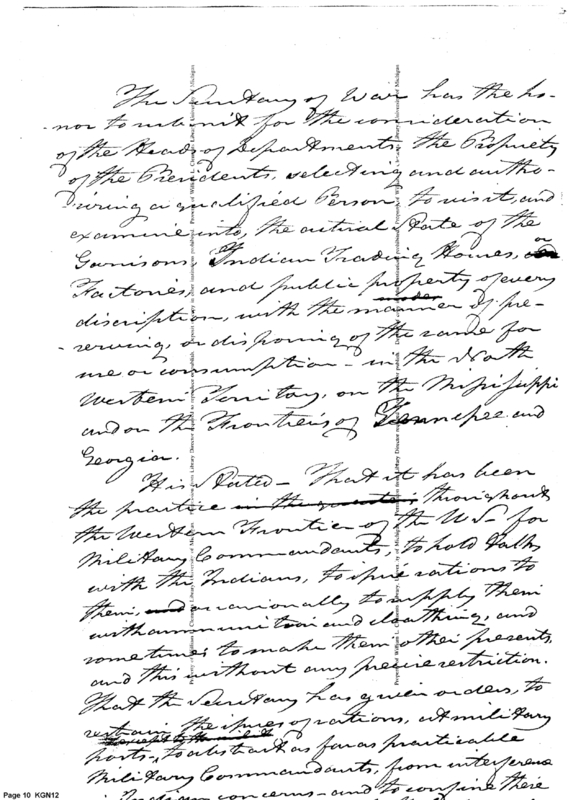 The Secretary of War has the ho-
-nor to submit for the consideration
of the Heads of Departments the Propriety
of the Presidents, selecting and autho-
-rizing a qualified Person, to visit, and
examine into, the actual State of the
Garrisons, Indian Trading Houses, or
Factories, and public property of every
discription, with the manner of pre-
-serving, or disposing of the same for
use or consumption - in the North
Western Territory, on the Mississippi
and on the Frontiers of Tennessee and
Georgia.
It is Stated - That it has been
the practice in the quarters, throughout
the Western Frontier of the U S - for
Military Commandants, to hold Talks
with the Indians, to issue rations to
them, and occasionally to supply them
with ammunition and cloathing, and
sometimes to make them other presents
and this without any precise restriction.
That the Secretary has given orders, to
restrain the issues of rations, at military
posts, to abstract as far as practicable
Military Commandants, from interference
Indian concerns - and to confine their
Page 10 KGN12